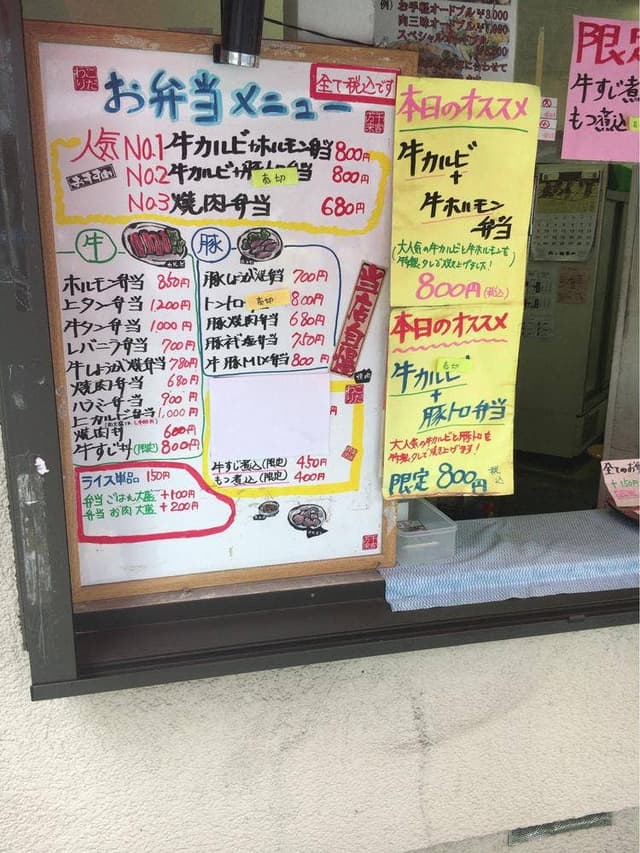 お手軽オードブル ¥3,000
肉三昧オードブル ¥7,000
全て税込です
こだわり
お弁当メニュー
人気 No.1 牛カルビ+ホルモン弁当 800円
おすすめ No.2 牛カルビ+豚トロ弁当 売切 800円
No.3 焼肉弁当 680円
牛
ホルモン弁当 850円
上タン弁当 1200円
牛タン弁当 1000円
レバニラ弁当 700円
牛しょうが焼弁当 780円
焼肉弁当 680円
ハラミ弁当 900円
上カルビ弁当 1,000円
焼肉丼 600円
牛すじ丼(限定) 800円
豚
豚しょうが焼弁当 700円
トントロ 売切 800円
豚焼肉弁当 680円
豚ネギ塩弁当 750円
牛豚MIX弁当 800円
当店自慢
牛すじ煮込(限定) 450円
もつ煮込(限定) 400円
ライス単品 150円
弁当 ごはん大盛 +100円
弁当 お肉大盛 +200円
本日のオススメ
牛カルビ
+
牛ホルモン
弁当
大人気の牛カルビと牛ホルモンを
特製タレで焼き上げました!
800円(税込)
本日のオススメ
売切
牛カルビ
+
豚トロ弁当
大人気の牛カルビと豚トロを
特製タレで焼き上げました!
限定 800円 税込
限定
牛すじ煮
もつ煮込
全てのお弁
+150円